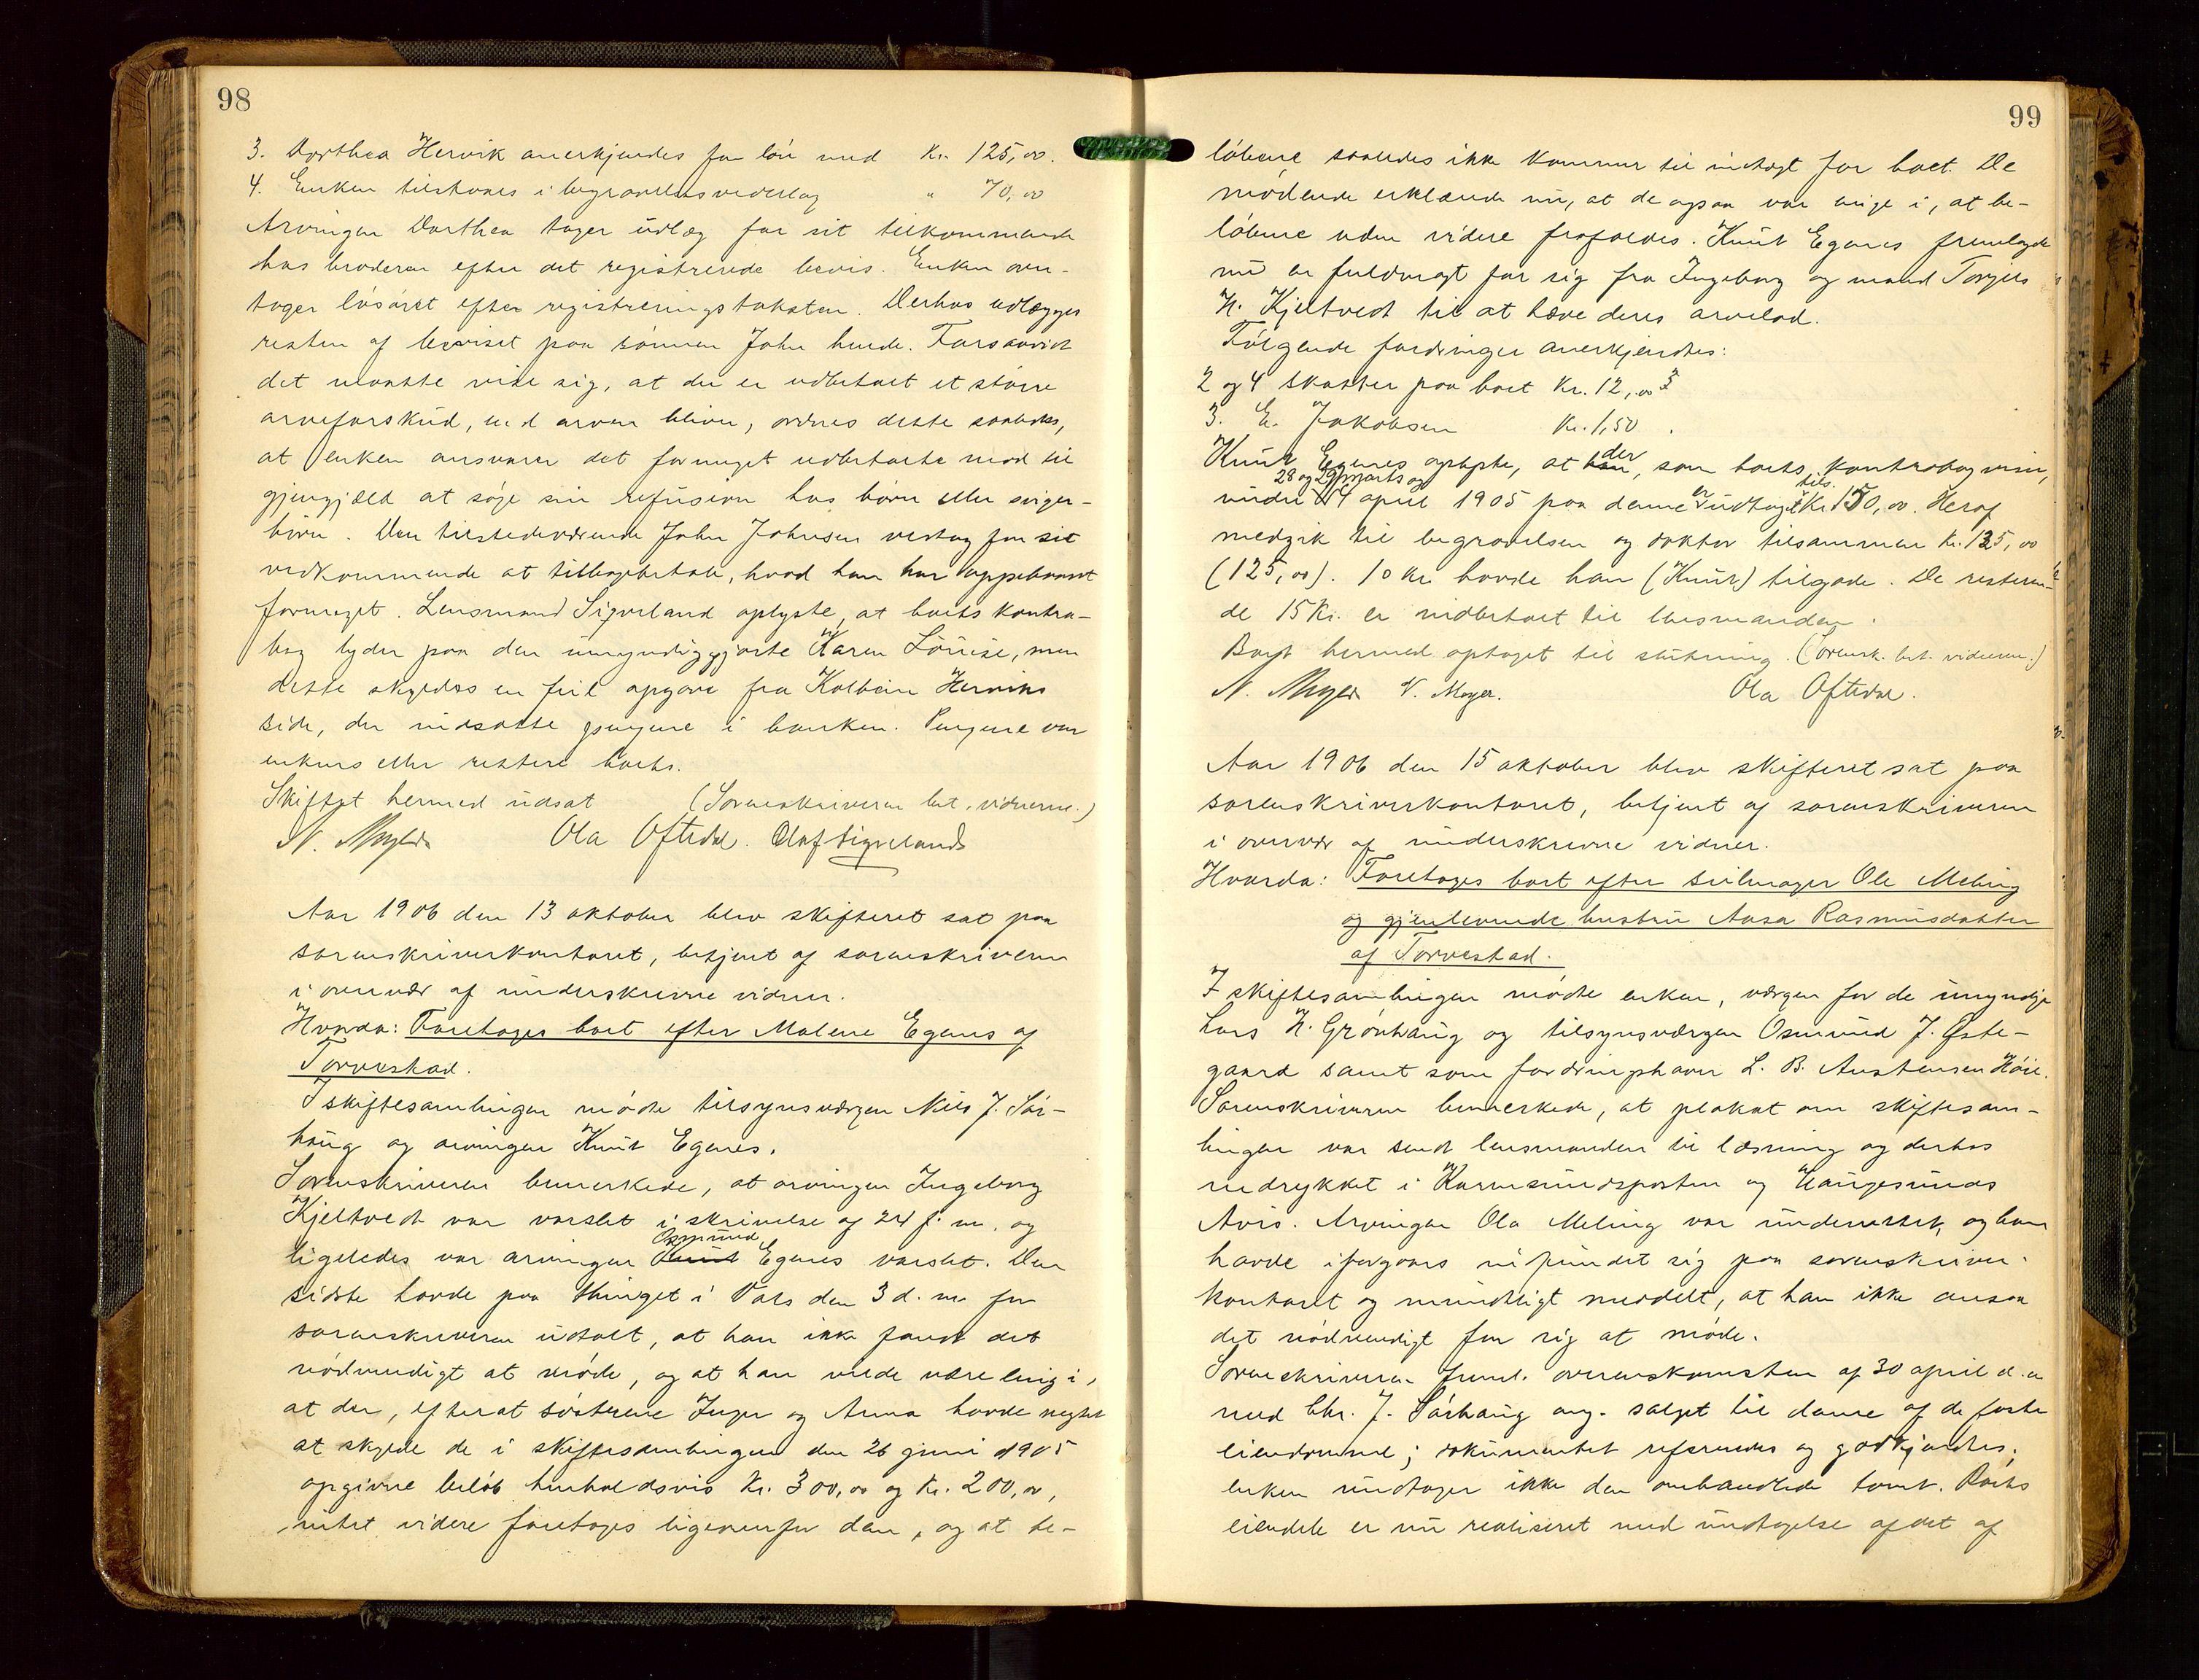 98
3. Dorthea Hervik anerkjendes for løn med Kr. 125,00.
4. Enken tilstaaes i begravelsesvederlag " 70,00
Arvingen Dorthea tager udlæg for sit tilkommende
hos broderen efter det registrerede bevis. Enken over-
tager løsøret efter registreringstaksten. Derhos udlægges
resten af beviset paa sønnen John hende. Forsaavidt
det maatte vise sig, at der er udbetalt et større
arveforskud, end arven bliver, ordnes dette saaledes,
at enken ansvarer det formeget udbetalte mod til
gjengjæld at søge sin refusion hos børn eller sviger-
børn. Den tilstedeværende John Johnsen vedtog for sit
vedkommende at tilbagebetale, hvad han har oppebaaret
formeget. Lensmand Sigveland oplyste, at boets kontra-
bog lyder paa den umyndiggjorte Karen Louise, men
dette skyldes en feil opgave fra Kolbein Herviks
side, der indsatte pengene i banken. Pengene var
enkens eller rettere boets.
Skiftet hermed udsat (Sorenskriveren bet. vidnerne.)
N. Meyer Ola Oftedal. Olaf Sigveland
Aar 1906 den 13 oktober blev skifteret sat paa
sorenskriverkontoret, betjent af sorenskriveren
i overvær af underskrevne vidner.
Hvorda: Foretages boet efter Malene Egenes af
Torvestad.
I skiftesamlingen mødte tilsynsværgen Nils J. Sør-
haug og arvingen Knut Egenes.
Sorenskriveren bemerkede, at arvingen Ingeborg
Kjeltvedt var varslet i skrivelse af 24 f. m. og
Osmund
ligeledes var arvingen Knut Egenes varslet. Den
sidste havde paa thinget i Vats den 3 d. m. for
sorenskriveren udtalt, at han ikke fandt det
nødvendigt at møde, og at han vilde være enig i,
at der, efterat søstrene Inger og Anna havde negtet
at skylde de i skiftesamlingen den 26 juni 1905
opgivne beløb henholdsvis Kr. 300,00 og Kr. 200,00,
intet videre foretages ligeoverfor dem, og at be-
99
løbene saaledes ikke kommer til indtægt for boet. De
mødende erklærede nu, at de ogsaa var enige i, at be-
løbene uden videre frafaldes. Knut Egenes fremlagde
nu en fuldmagt for sig fra Ingeborg og mand Torgils
K. Kjeltvedt til at hæve deres arvelod.
Følgende fordringer anerkjendtes:
2 og 4 skatter paa boet Kr. 12,03
3. E. Jakobsen Kr. 1,50.
der
Knut Egenes oplyste, at han, som boets kontrabog viser,
28 og 29 marts og er tils.
under 4 april 1905 paa denne udtaget Kr. 150,00. Heraf
medgik til begravelsen og doktor tilsammen Kr. 135,00
(125,00). 10 Kr. havde han (Knut) tilgode. De resteren-
de 15 Kr. er indbetalt til lensmanden.
Boet hermed optaget til slutning. (Sorensk. bet. vidnerne.)
N. Meyer V. Meyer. Ola Oftedal.
Aar 1906 den 15 oktober blev skifteret sat paa
sorenskriverkontoret, betjent af sorenskriveren
i overvær af underskrevne vidner.
Hvorda: Foretages boet efter seilmager Ole Meling
og gjenlevende hustru Aasa Rasmusdatter
af Torvestad.
I skiftesamlingen mødte enken, værgen for de umyndige
Lars K. Grønhaug og tilsynsværgen Osmund J. Øste-
gaard samt som fordringshaver L. B. Austensen Høie.
Sorenskriveren bemerkede, at plakat om skiftesam-
lingen var sendt lensmanden til læsning og derhos
indrykket i Karmsundsposten og Haugesunds
Avis. Arvingen Ola Meling var underrettet, og han
havde iforgaars indfundet sig paa sorenskriver-
kontoret og mundtligt meddelt, at han ikke ansaa
det nødvendigt for sig at møde.
Sorenskriveren freml. overenskomsten af 30 april d. a
med Chr. J. Sørhaug ang. salget til denne af de faste
eiendomme; dokumentet refereredes og godkjendtes;
enken undtager ikke den omhandlede tomt. Boets
eiendele er nu realiseret med undtagelse af det af